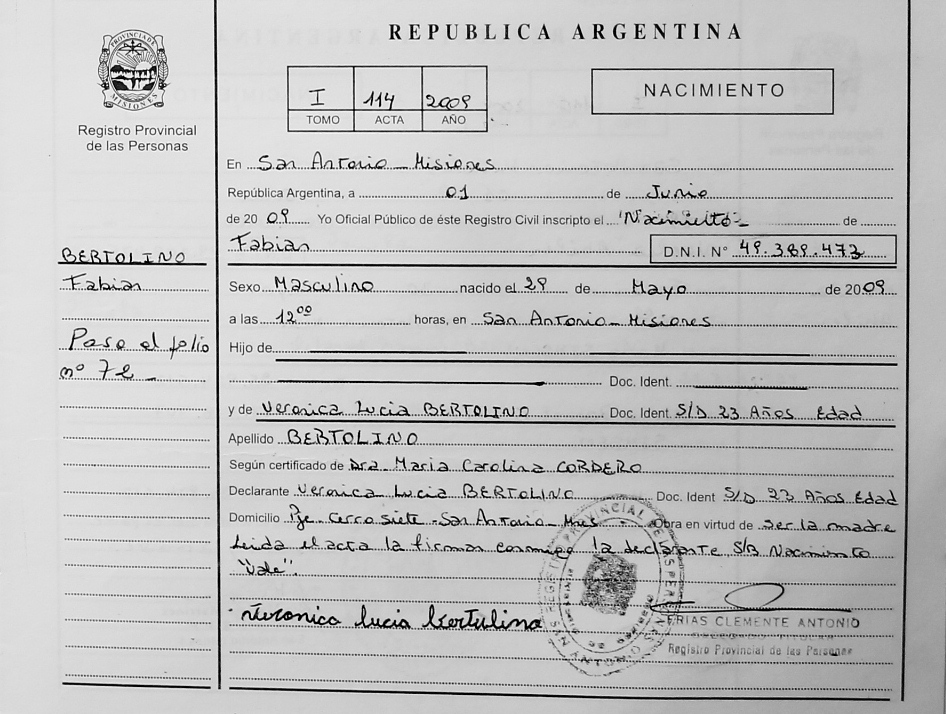 REPUBLICA ARGENTINA
PROVINCIA DE MISIONES
Registro Provincial
de las Personas
I 114 2009
TOMO ACTA AÑO
NACIMIENTO
En San Antonio - Misiones
República Argentina, a 01 de Junio
de 20 09 Yo Oficial Público de éste Registro Civil inscripto el "Nacimiento" de
Fabian D.N.I. N° 49.389.473
BERTOLINO
Fabian
Pase al folio
nº 72 -
Sexo Masculino nacido el 29 de Mayo de 2009
a las 12⁰⁰ horas, en San Antonio - Misiones
Hijo de
Doc. Ident.
y de Veronica Lucia BERTOLINO Doc. Ident. S/D 23 Años Edad
Apellido BERTOLINO
Según certificado de Dra. Maria Carolina CORDERO
Declarante Veronica Lucia BERTOLINO Doc. Ident S/D 23 Años Edad
Domicilio Pje. Cerro Siete - San Antonio Mnes - Obra en virtud de Ser la madre
Leida el acta la firman conmigo la declarante S/B Nacimiento
"Vale".
Veronica lucia Bertulino
FRIAS CLEMENTE ANTONIO
DELEGADO TITULAR
Registro Provincial de las Personas